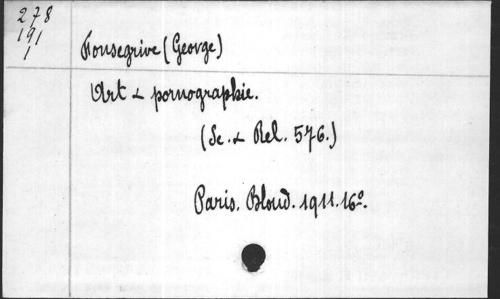 278
191
1
Fonsegrive (George)
Art & pornographie.
(Sc. & Rel. 576.)
Paris. Bloud. 1911. 16º.